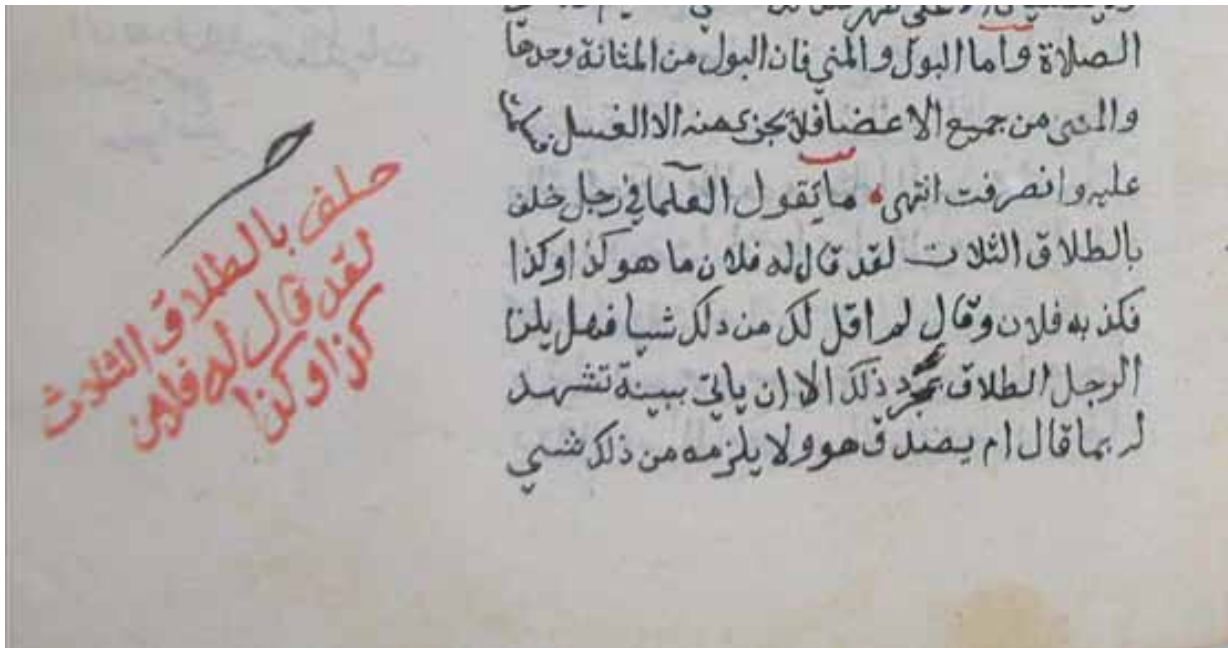 الصلاة واما البول والمني فان البول من المثانة وحدها
والمنى من جميع الاعضا فلا يجزي منه الا الغسل
عليه وانصرفت انتهى ما يقول العلما في رجل حلف
بالطلاق الثلاث لقد قال له فلان ما هو كذا وكذا
فكذبه فلان وقال لم اقل لك من دلك شيا فهل يلزم
الرجل الطلاق بمجرد ذلك الا ان ياتي ببينة تشهد
له بما قال ام يصدق هو ولا يلزمه من ذلك شي
حلف بالطلاق الثلاث
لقد قال له فلان
كذا وكذا